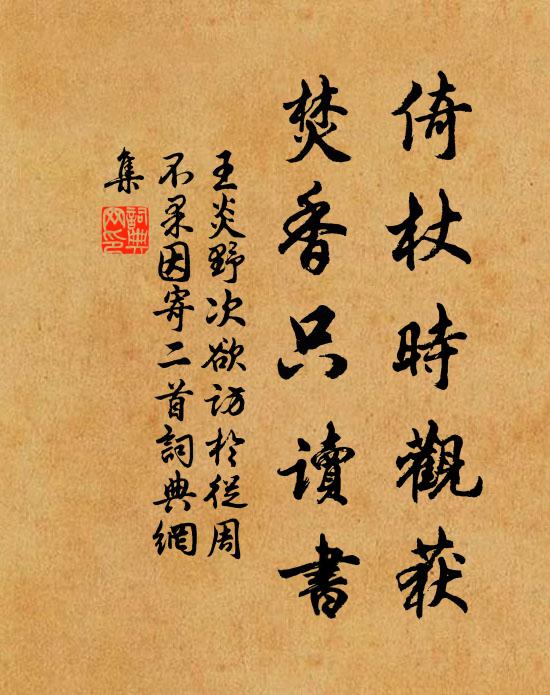 倚杖時觀荻
焚香只讀書
王炎野次欲訪於從周
不果因寄二首詞典網
集
詞典網印